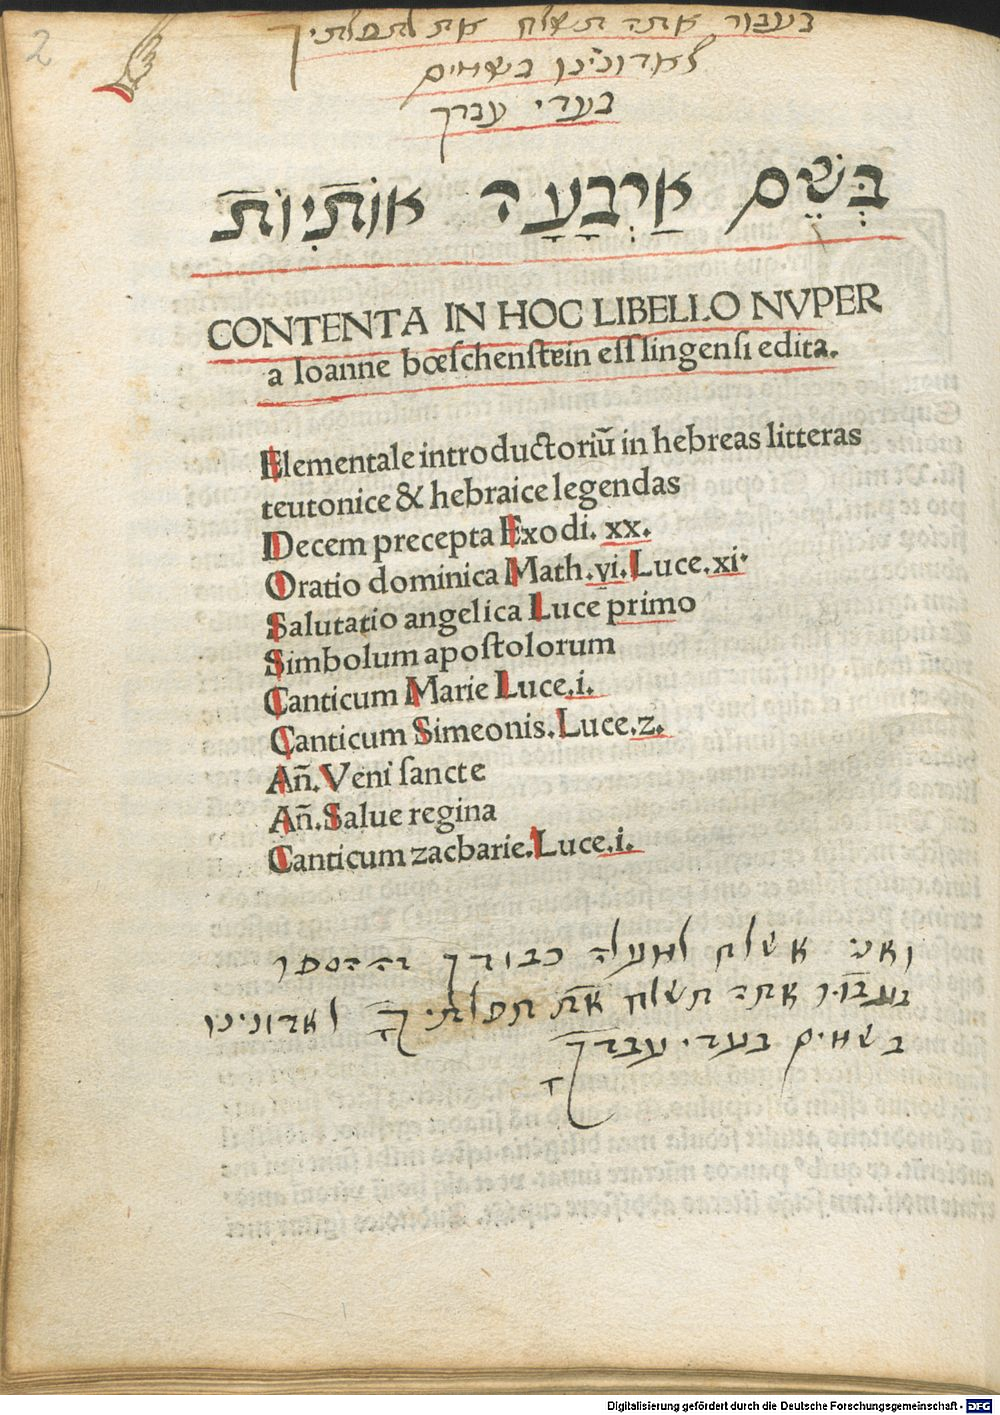 2
בעבור אתה תשלח את לתפלתיך
לאדונינו בשמים
בעדי עבדך
בְּשֵׁם אַרְבָּעָה אוֹתִּיּוֹת
CONTENTA IN HOC LIBELLO NVPER
a Ioanne bœſchenſtein eſſlingenſi edita.
Elementale introductoriū in hebreas litteras
teutonice & hebraice legendas
Decem precepta Exodi. xx.
Oratio dominica Math.vi. Luce.xi.
Salutatio angelica Luce primo
Simbolum apoſtolorum
Canticum Marie Luce.i.
Canticum Simeonis. Luce.2.
Añ. Veni ſancte
Añ. Salue regina
Canticum zacharie. Luce.i.
ואני אשלח למעלה כבודך הספר
בעבור אתה תשלח את תפלתיך לאדונינו
בשמים בעדי עבדך
Digitalisierung gefördert durch die Deutsche Forschungsgemeinschaft - DFG